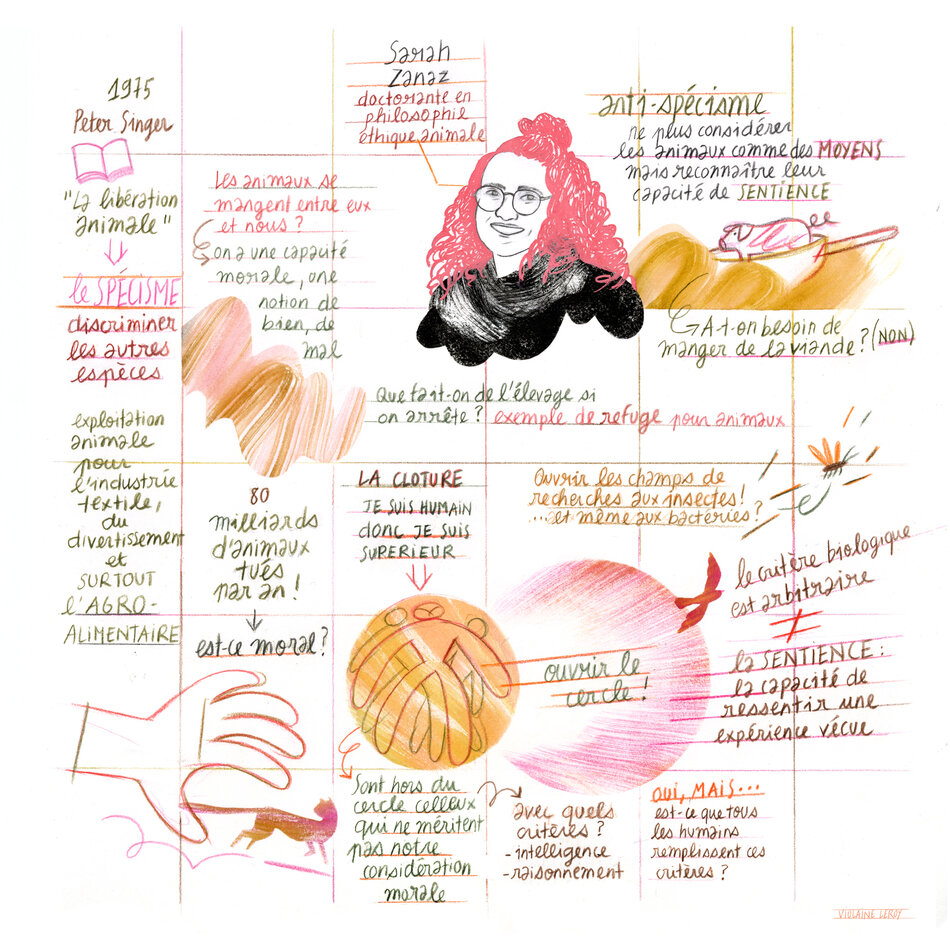 1975
Peter Singer
"La libération
animale"
le SPÉCISME
discriminer
les autres
espèces
exploitation
animale
pour
l'industrie
textile,
du
divertissement
et
SURTOUT
l'AGRO-
ALIMENTAIRE
Les animaux se
mangent entre eux
et nous ?
on a une capacité
morale, une
notion de
bien, de
mal
80
milliards
d'animaux
tués
par an !
est-ce moral ?
Sarah
Zanaz
doctorante en
philosophie
éthique animale
anti-spécisme
ne plus considérer
les animaux comme des MOYENS
mais reconnaître leur
capacité de SENTIENCE
A-t-on besoin de
manger de la viande ? (NON)
Que fait-on de l'élevage si
on arrête ? exemple de refuge pour animaux
LA CLOTURE
JE SUIS HUMAIN
donc JE SUIS
SUPERIEUR
Ouvrir les champs de
recherches aux insectes !
...et même aux bactéries ?
ouvrir le
cercle !
le critère biologique
est arbitraire
≠
la SENTIENCE :
la capacité de
ressentir une
expérience vécue
Sont hors du
cercle celleux
qui ne méritent
pas notre
considération
morale
avec quels
critères ?
-intelligence
-raisonnement
OUI, MAIS...
est-ce que tous
les humains
remplissent ces
critères ?
VIOLAINE LEROY